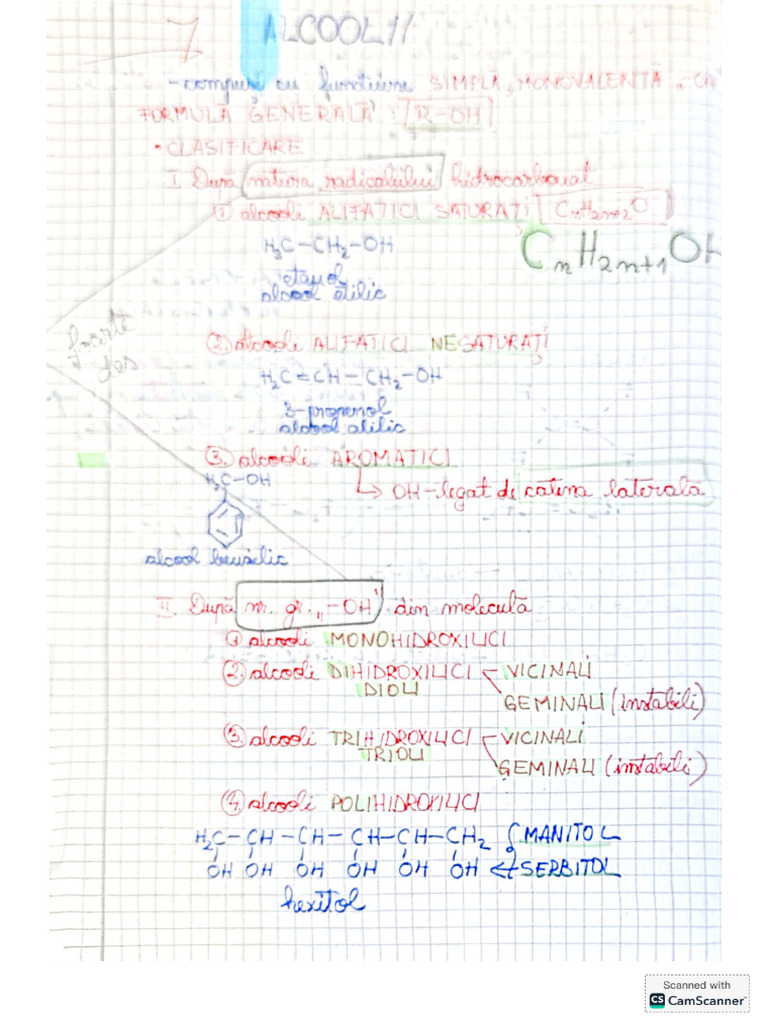 7 ALCOOLII
-compuși cu funcțiune SIMPLĂ, MONOVALENTĂ „-OH"
FORMULĂ GENERALĂ: R-OH
• CLASIFICARE
I. După natura radicalului hidrocarbonat
① alcooli ALIFATICI SATURAȚI CnH2n+2O
H3C-CH2-OH
CnH2n+1OH
etanol
alcool etilic
② alcooli ALIFATICI NESATURAȚI
H2C=CH-CH2-OH
3-propenol
alcool alilic
③ alcooli AROMATICI
H2C-OH
→ OH-legat de catena laterală
alcool benzilic
II. După nr. gr. „-OH" din moleculă
① alcooli MONOHIDROXILICI
② alcooli DIHIDROXILICI - VICINALI
DIOLI
GEMINALI (instabili)
③ alcooli TRIHIDROXILICI - VICINALI
TRIOLI
GEMINALI (instabili)
④ alcooli POLIHIDROXILICI
H2C-CH-CH-CH-CH-CH2 MANITOL
OH OH OH OH OH OH SERBITOL
hexitol
Scanned with
CS CamScanner